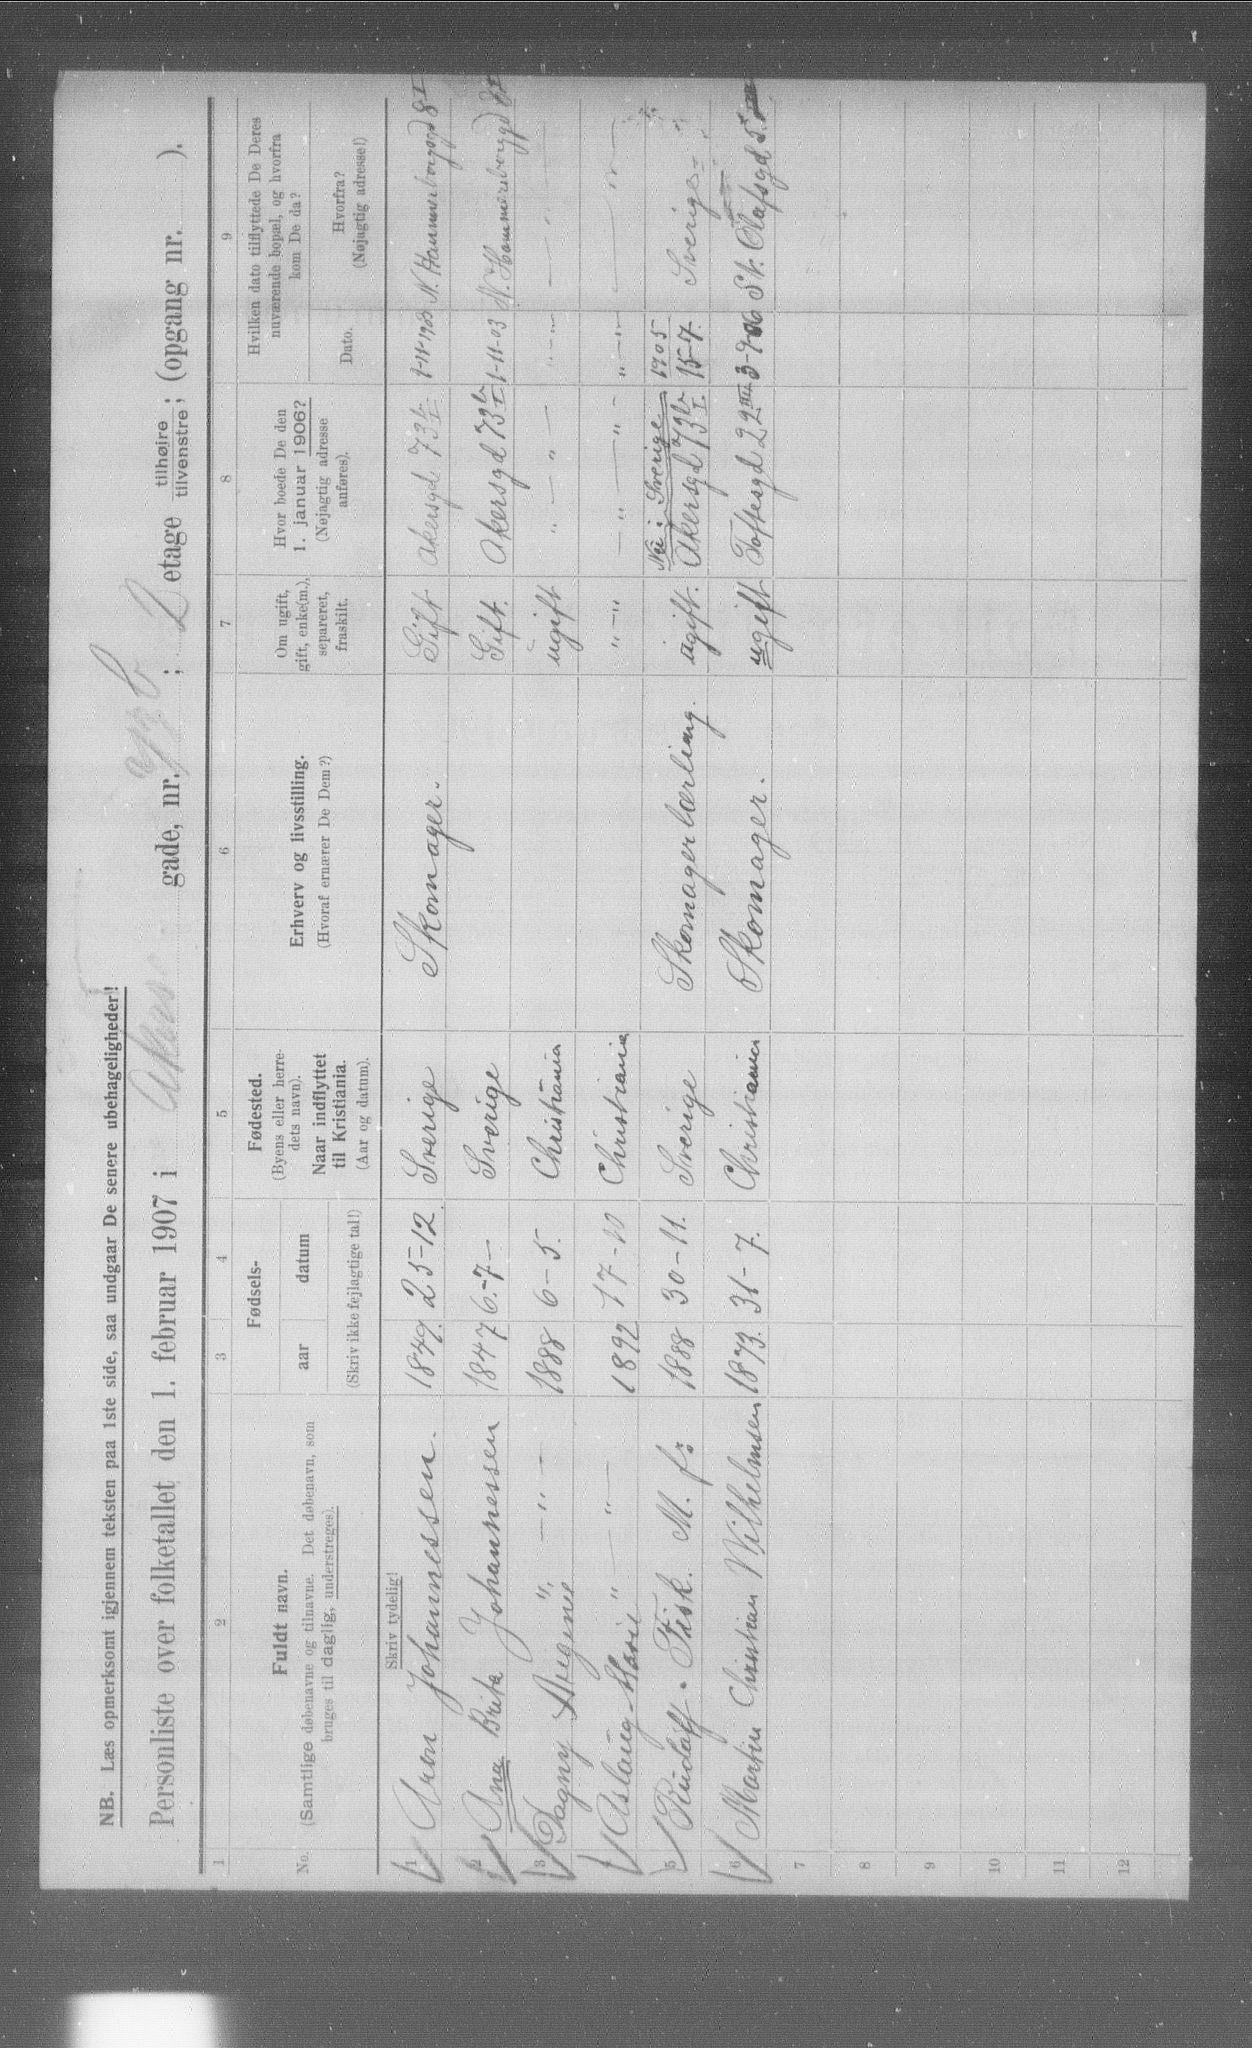 NB. Læs opmerksomt igjennem teksten paa 1ste side, saa undgaar De senere ubehageligheder!
Personliste over folketallet den 1. februar 1907 i Akers gade, nr. 73 b ; 2 etage tilhøjre tilvenstre ; (opgang nr. ).
1 2 3 4 5 6 7 8 9
No.
Fuldt navn.
(Samtlige døbenavne og tilnavne. Det døbenavn, som
bruges til daglig, understreges).
Fødsels-
aar datum
(Skriv ikke fejlagtige tal!)
Fødested.
(Byens eller herre-
dets navn).
Naar indflyttet
til Kristiania.
(Aar og datum).
Erhverv og livsstilling.
(Hvoraf ernærer De Dem?)
Om ugift,
gift, enke(m.),
separeret,
fraskilt.
Hvor boede De den
1. januar 1906?
(Nøjagtig adresse
anføres).
Hvilken dato tilflyttede De Deres
nuværende bopæl, og hvorfra
kom De da?
Dato.
Hvorfra?
(Nøjagtig adresse!)
Skriv tydelig!
1 Aron Johannessen. 1849. 25-12. Sverige Skomager. Gift Akersgd 73b I 1-11-1903 N. Hammersborggd 8 I
2 Ana Brita Johannessen 1847 6.-7- Sverige Gift. Akersgd 73b I 1-11-03 N. Hammersborggd 8 I
3 Dagny " - " - 1888 6-5. Christiania ugift " - " - " - " - " -
4 Aslaug Marie " - " - 1892 17-10 Christiania " - " - " - " - " - " - "
5 Rudolf. Fisk. M. fr 1888 30-11. Sverige Skomagerlærling. ugift. Nei i Sverige Akersgd 73b I. 1905 15-7. Sverige
6 Martin Christian Wilhelmsen 1873. 31-7. Christiania Skomager. ugift Toftesgd 22 III 3-9-06 St. Olafsgd 5.
7
8
9
10
11
12